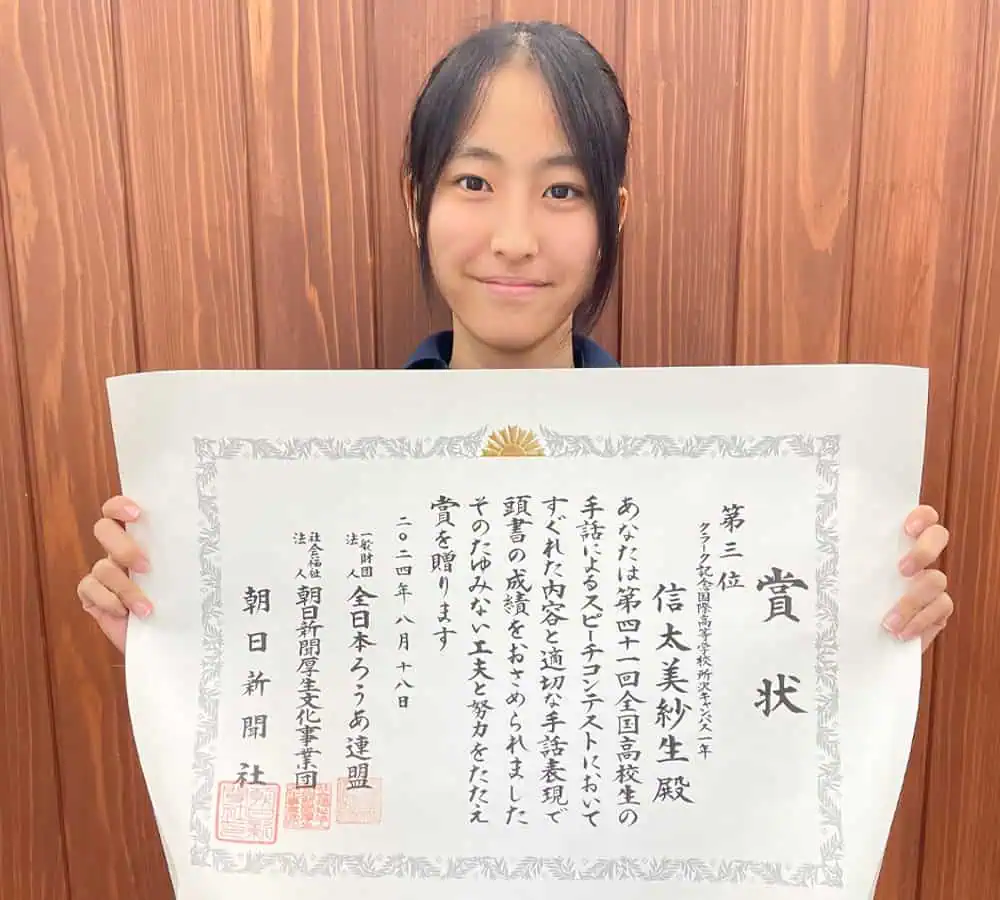 賞状
第三位
クラーク記念国際高等学校所沢キャンパス一年
信太美紗生殿
あなたは第四十一回全国高校生の
手話によるスピーチコンテストにおいて
すぐれた内容と適切な手話表現で
頭書の成績をおさめられました
そのたゆみない工夫と努力をたたえ
賞を贈ります
二〇二四年八月十八日
一般財団法人 全日本ろうあ連盟
社会福祉法人 朝日新聞厚生文化事業団
朝日新聞社